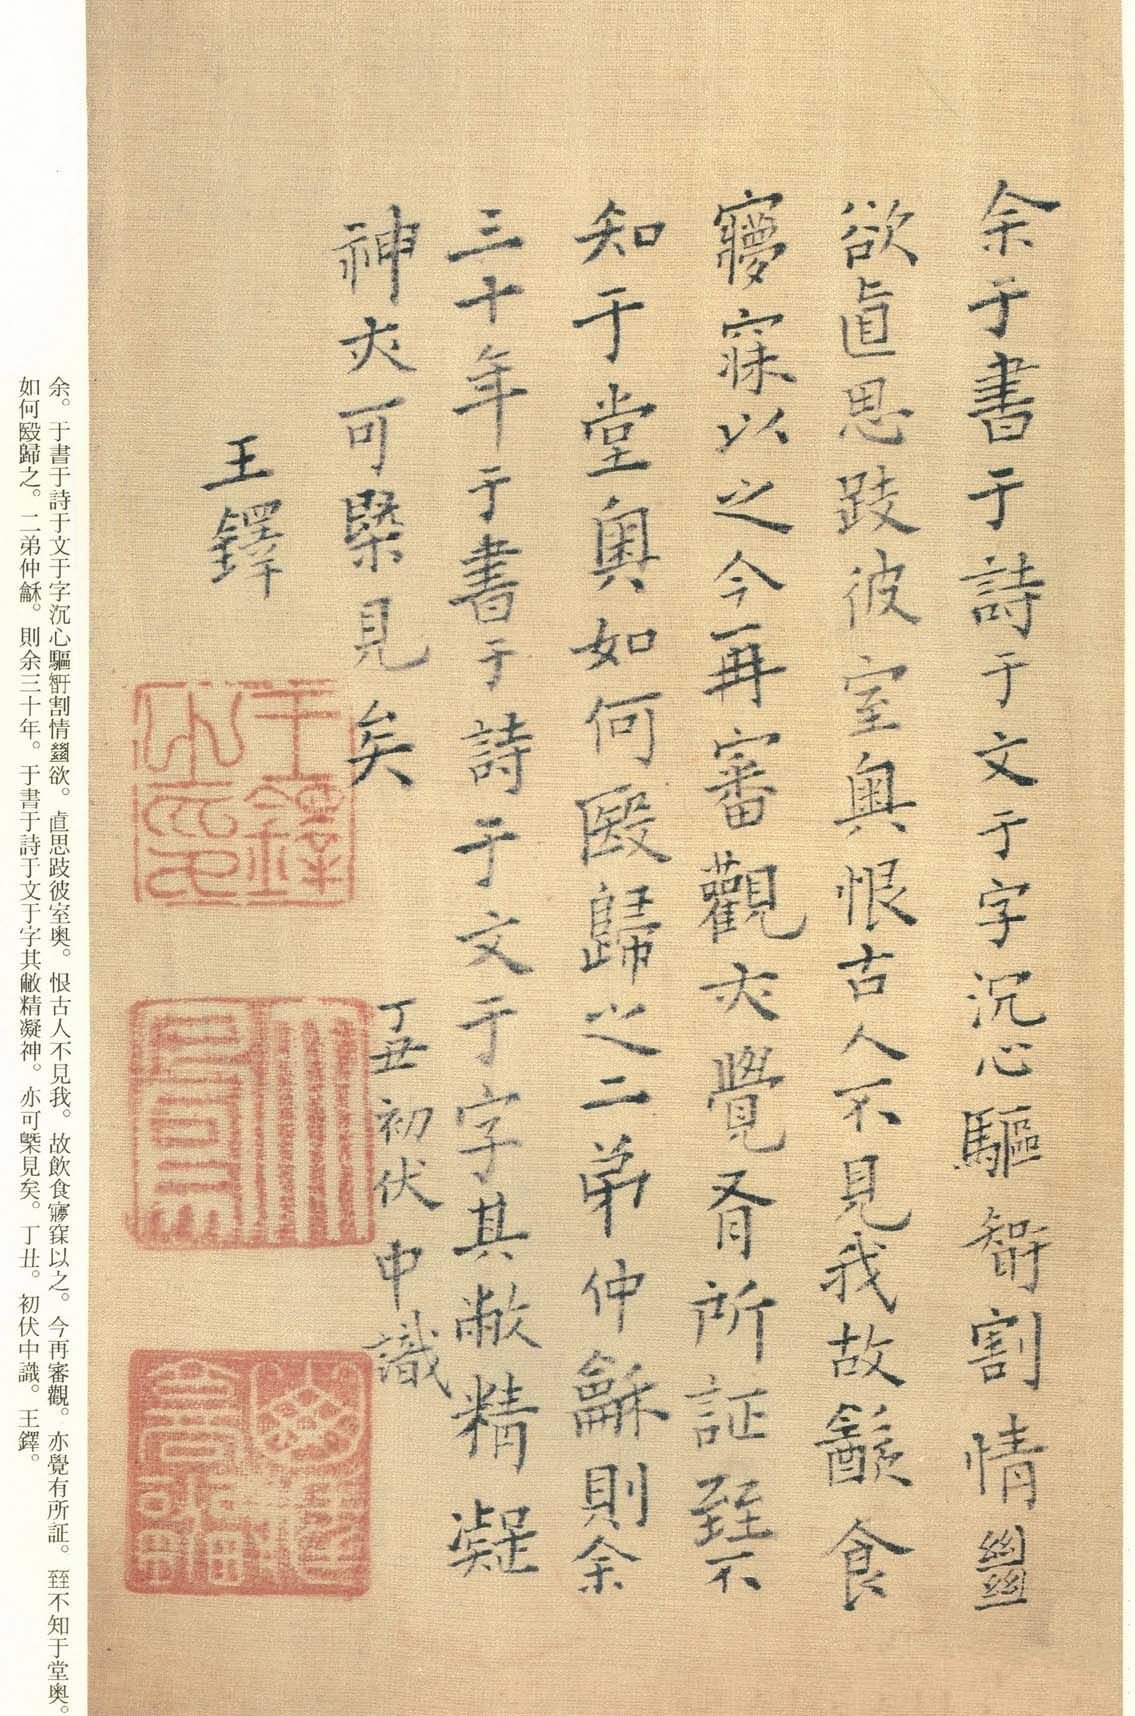 余于書于詩于文于字沉心驅𥏼割情㡭
欲直思跂彼室奧恨古人不見我故飲食
寢寐以之今再審觀亦覺有所証至不
知于堂奧如何毆歸之二弟仲龢則余
三十年于書于詩于文于字其敝精凝
神亦可槩見矣
丁丑初伏中識
王鐸
余。于書于詩于文于字沉心驅𥏼割情㡭欲。直思跂彼室奧。恨古人不見我。故飲食寢寐以之。今再審觀。亦覺有所証。至不知于堂奧。
如何毆歸之。二弟仲龢。則余三十年。于書于詩于文于字其敝精凝神。亦可槩見矣。丁丑。初伏中識。王鐸。